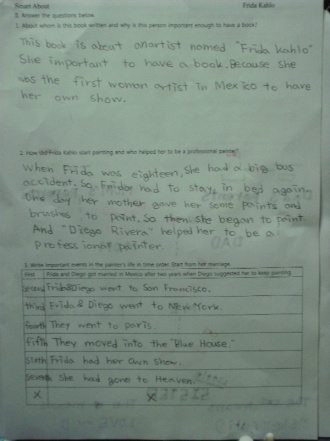 Smart About
Frida Kahlo
B. Answer the questions below.
1. About whom is this book written and why is this person important enough to have a book?
This book is about an artist named "Frida Kahlo"
She important to have a book. Because she
was the first woman artist in Mexico to have
her own show.
2. How did Frida Kahlo start painting and who helped her to be a professional painter?
When Frida was eighteen, she had a big bus
accident. So Frida had to stay in bed again.
One day her mother gave her some paints and
brushes to paint. So then she began to paint.
And "Diego Rivera" helped her to be a
professional painter.
3. Write important events in the painter's life in time order. Start from her marriage.
First Frida and Diego got married in Mexico after two years when Diego suggested her to keep painting.
second Frida&Diego went to San Francisco.
third Frida & Diego went to New York.
fourth They went to paris.
fifth They moved into the "Blue House."
sixth Frida had her own show.
seventh She had gone to Heaven.
X X